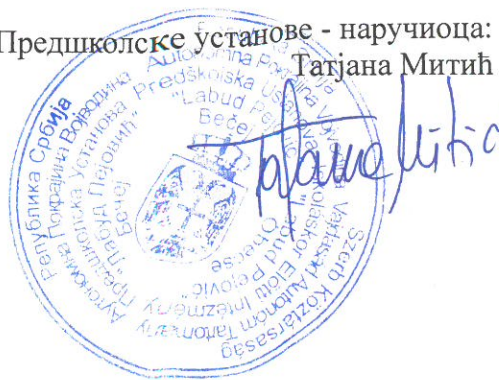 Предшколске установе - наручиоца:
Татјана Митић
Република Србија
Аутономна Покрајина Војводина
Предшколска Установа
"Лабуд Пејовић"
Бечеј
Autonomna Pokrajina Vojvodina
Predškolska Ustanova
"Labud Pejović"
Bečej
Szerb Köztársaság
Vajdaság Autonóm Tartomány
Iskoláskor Előtti Intézmény
"Labud Pejović"
Óbecse